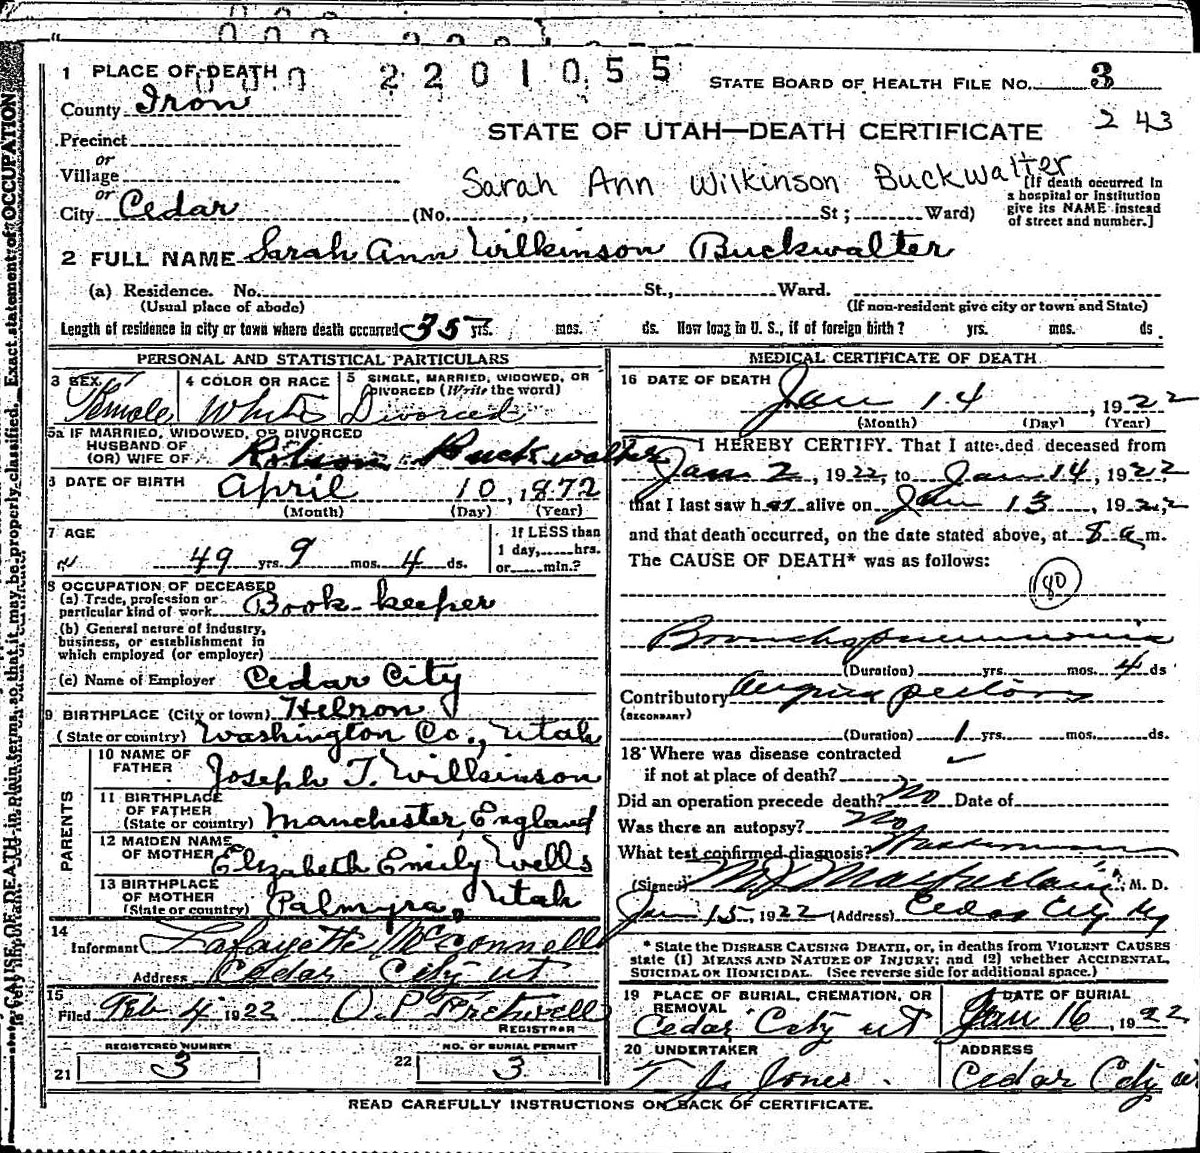 000 2201055
1 PLACE OF DEATH
STATE BOARD OF HEALTH FILE NO. 3
County Iron
243
Precinct
STATE OF UTAH—DEATH CERTIFICATE
or
Village
Sarah Ann Wilkinson Buckwalter
or
City Cedar (No. , St; Ward)
[If death occurred in
a hospital or institution
give its NAME instead
of street and number.]
2 FULL NAME Sarah Ann Wilkinson Buckwalter
(a) Residence. No. St., Ward.
(Usual place of abode) (If non-resident give city or town and State)
Length of residence in city or town where death occurred 35 yrs. mos. ds. How long in U. S., if of foreign birth? yrs. mos. ds
PERSONAL AND STATISTICAL PARTICULARS
3 SEX
Female
4 COLOR OR RACE
White
5 SINGLE, MARRIED, WIDOWED, OR
DIVORCED (Write the word)
Divorced
5a IF MARRIED, WIDOWED, OR DIVORCED
HUSBAND OF
(OR) WIFE OF Buckwalter
DATE OF BIRTH April 10, 1872
(Month) (Day) (Year)
7 AGE
49 yrs. 9 mos. 4 ds.
If LESS than
1 day, hrs.
or min.?
8 OCCUPATION OF DECEASED
(a) Trade, profession or
particular kind of work Book-keeper
(b) General nature of industry,
business, or establishment in
which employed (or employer)
(c) Name of Employer Cedar City
9 BIRTHPLACE (City or town) Hebron
(State or country) Washington Co., Utah
PARENTS
10 NAME OF
FATHER Joseph T. Wilkinson
11 BIRTHPLACE
OF FATHER
(State or country) Manchester, England
12 MAIDEN NAME
OF MOTHER Elizabeth Emily Wells
13 BIRTHPLACE
OF MOTHER
(State or country) Palmyra, Utah
14
Informant Lafayette McConnell
Address Cedar City ut
15
Filed Feb 4 1922 O. P. Fretwell
REGISTRAR
REGISTERED NUMBER
21 3
NO. OF BURIAL PERMIT
22 3
MEDICAL CERTIFICATE OF DEATH
16 DATE OF DEATH
Jan 14, 1922
(Month) (Day) (Year)
I HEREBY CERTIFY. That I attended deceased from
Jan 2, 1922, to Jan 14, 1922,
that I last saw her alive on Jan 13, 1922,
and that death occurred, on the date stated above, at 8 a m.
The CAUSE OF DEATH* was as follows:
80
Bronchopneumonia
(Duration) yrs. mos. 4 ds
Contributory Angina pectoris
(SECONDARY)
(Duration) 1 yrs. mos. ds.
18 Where was disease contracted
if not at place of death?
Did an operation precede death? No Date of
Was there an autopsy? No
What test confirmed diagnosis?
(Signed) M J Macfarlane, M. D.
Jan 15, 1922 (Address) Cedar City
* State the DISEASE CAUSING DEATH, or, in deaths from VIOLENT CAUSES
state (1) MEANS AND NATURE OF INJURY; and (2) whether ACCIDENTAL,
SUICIDAL OR HOMICIDAL. (See reverse side for additional space.)
19 PLACE OF BURIAL, CREMATION, OR
REMOVAL
Cedar City ut
DATE OF BURIAL
Jan 16, 1922
20 UNDERTAKER
T. J. Jones.
ADDRESS
Cedar City ut
READ CAREFULLY INSTRUCTIONS ON BACK OF CERTIFICATE.
CAUSE OF DEATH in plain terms, so that it may be properly classified. Exact statement of OCCUPATION